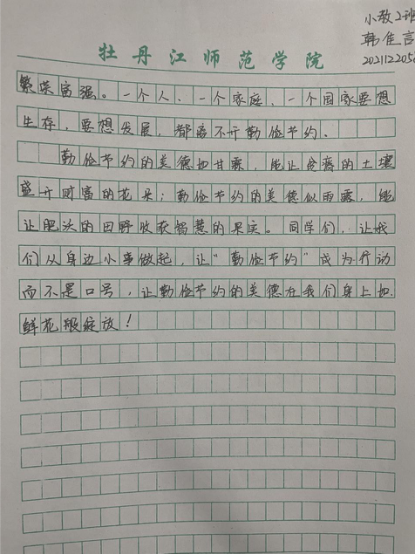 小教2班
韩佳言
牡丹江师范学院
繁荣富强。一个人,一个家庭,一个国家要想
生存,要想发展,都离不开勤俭节约。
勤俭节约的美德如甘霖,能让贫瘠的土壤
盛开财富的花朵;勤俭节约的美德似雨露,能
让肥沃的田野收获智慧的果实。同学们,让我
们从身边小事做起,让"勤俭节约"成为行动
而不是口号,让勤俭节约的美德在我们身上如
鲜花般绽放!